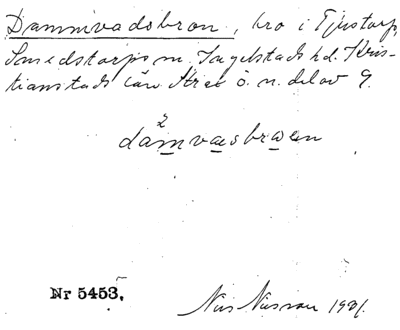 Dammvadsbron, kro i Ejustorp,
Smedstorps sn. Ingelstads hd. Kris-
tianstads län Strax ö. n. del av G.
2
damvasbroen
Nr 5453.
Nils Nilsson 1921.